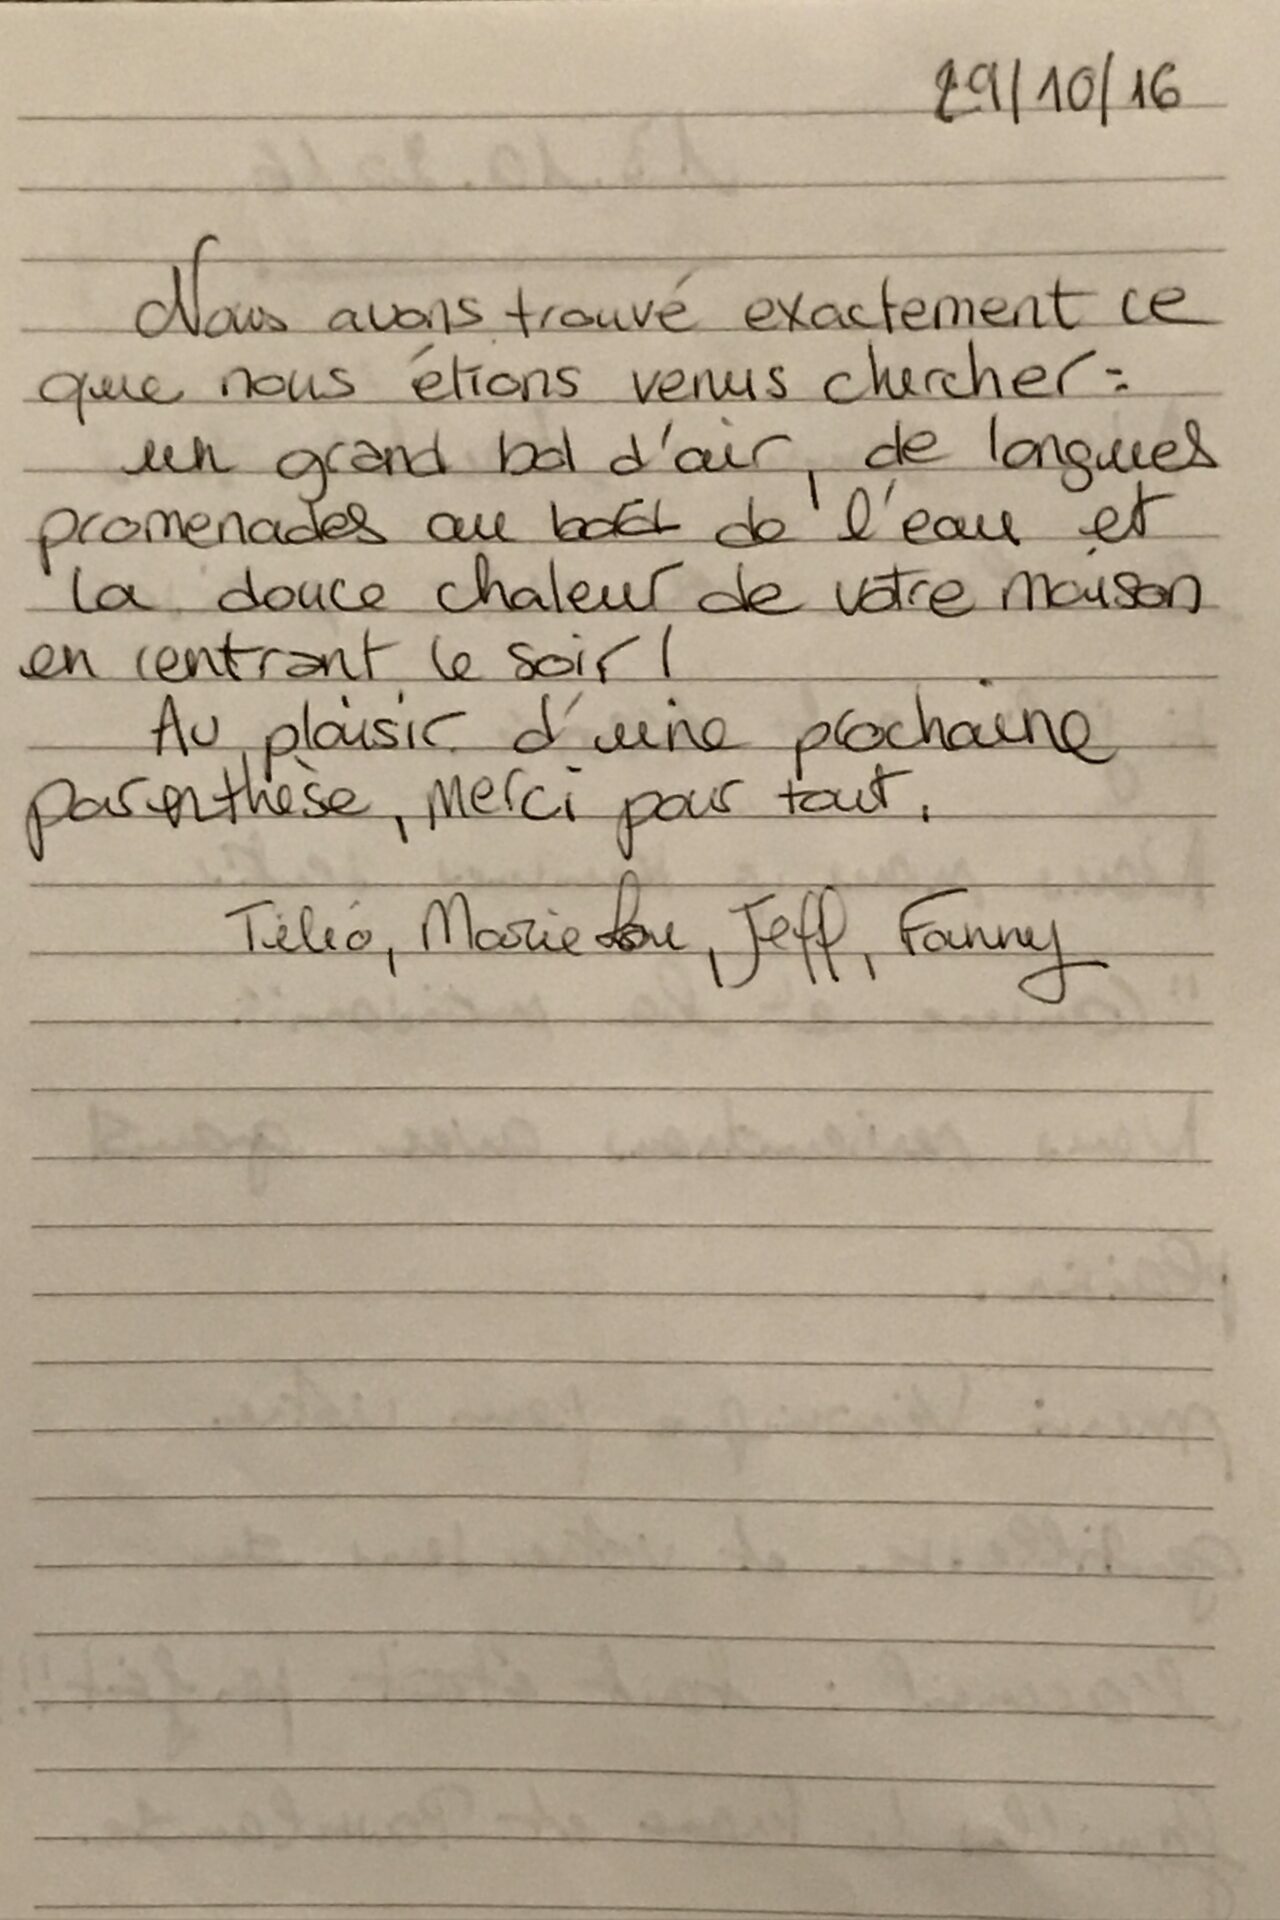 29/10/16
Nous avons trouvé exactement ce
que nous étions venus chercher :
un grand bol d'air, de longues
promenades au bord de l'eau et
la douce chaleur de votre maison
en rentrant le soir !
Au plaisir d'une prochaine
parenthèse, Merci pour tout.
Marie Lou, Jeff, Fanny